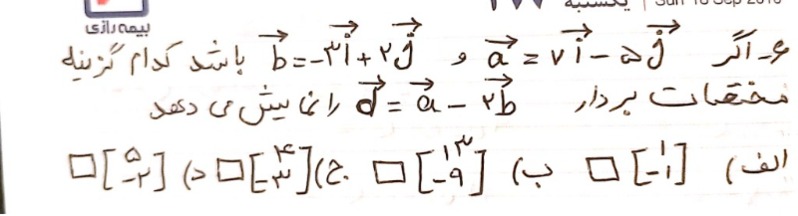 بیمه رازی
یکشنبه Sun 16 Sep 2018
۶- اگر a⃗ = ۷i⃗ - ۵j⃗ و b⃗ = -۳i⃗ + ۲j⃗ باشد کدام گزینه
مختصات بردار d⃗ = a⃗ - ۲b⃗ را نمایش می دهد
الف) [۱ -۱] □ ب) [۱۳ -۹] □ ج) [۴ -۳] □ د) [۵ -۲] □